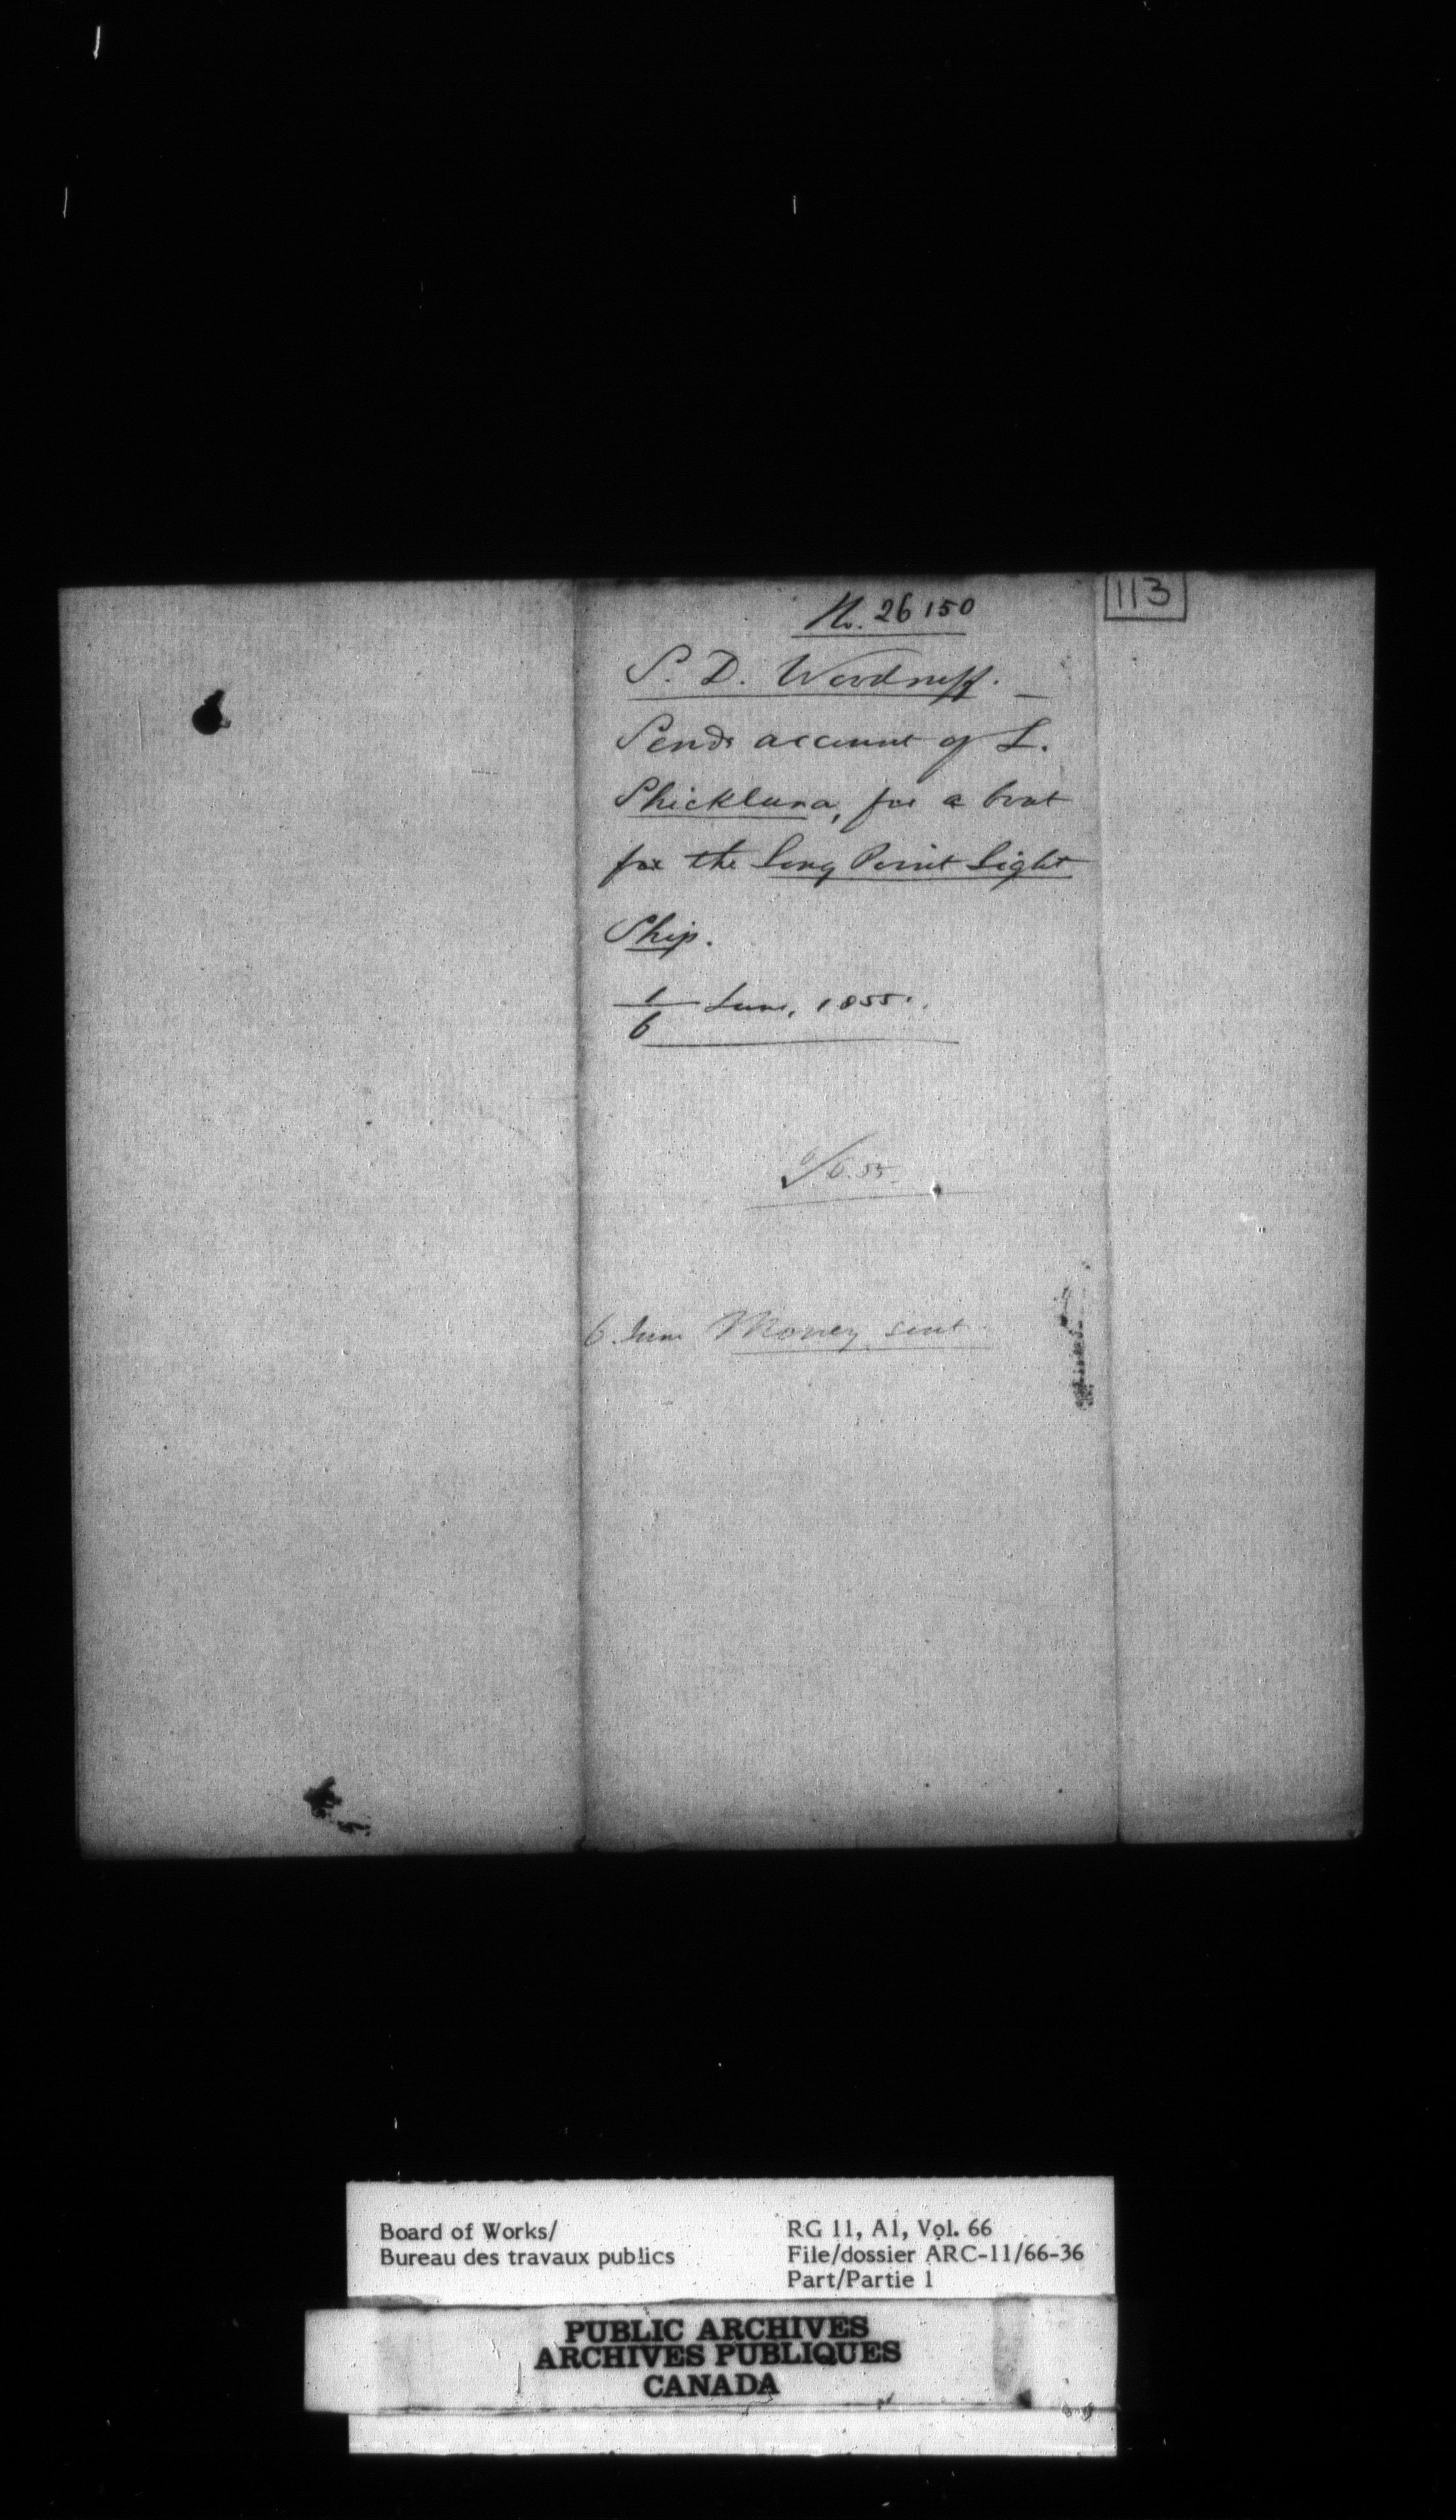 113
No. 26150
S. D. Woodruff.
Sends account of L.
Shickluna, for a boat
for the Long Point Light
Ship.
1/6 June, 1855.
6/6.55.
6 June Money sent.
Board of Works/
Bureau des travaux publics
RG 11, A1, Vol. 66
File/dossier ARC-11/66-36
Part/Partie 1
PUBLIC ARCHIVES
ARCHIVES PUBLIQUES
CANADA